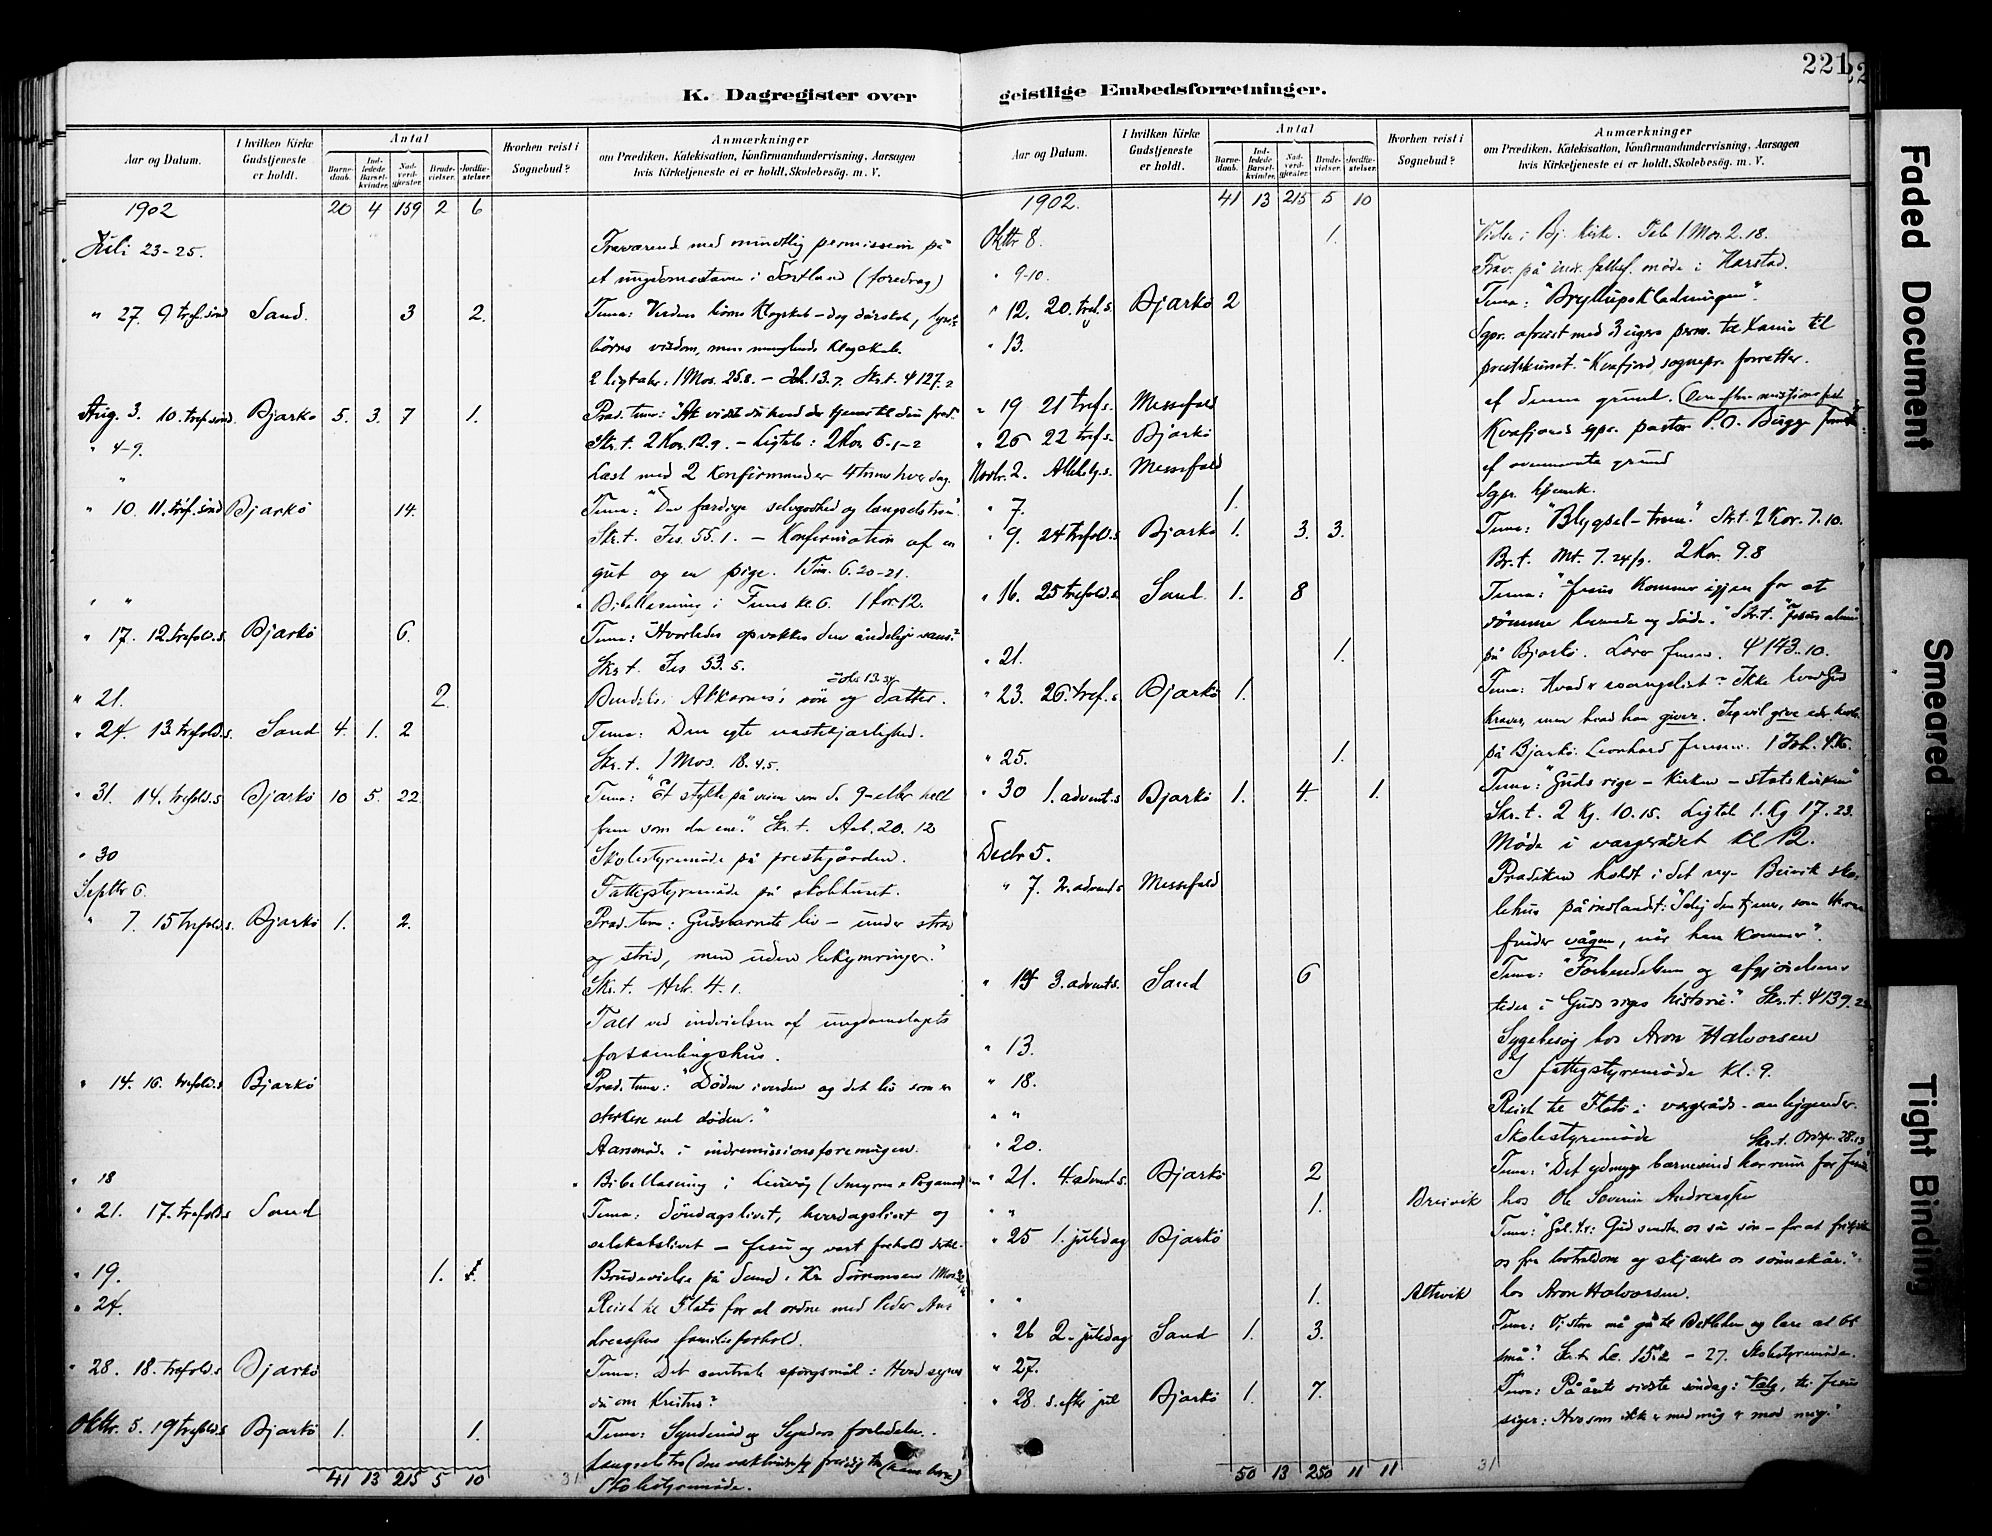 221
K. Dagregister over
geistlige Embedsforretninger.
Aar og Datum.
I hvilken Kirke Gudstjeneste er holdt.
Antal
Barne-daab.
Ind-ledede Barsel-kvinder.
Nad-verd-gjester.
Brude-vielser.
Jordfæ-stelser.
Hvorhen reist i Sognebud?
Anmærkninger
om Prædiken, Katekisation, Konfirmandundervisning, Aarsagen
hvis Kirketjeneste ei er holdt, Skolebesög. m. V.
1902 20 4 159 2 6
Juli 23-25. Fraværende med mundtlig permission på
et ungdomsstævne i Sortland (foredrag)
" 27. 9 tref. sönd Sand. 3 2. Tema: Verdens börns Klogskab - dog dårskab,
börns visdom, men manglende Klogskab.
2 ligtaler: 1 Mos. 25.8. - Joh. 13.7. Skr.t. ψ 127.2
Aug. 3. 10. tref sönd. Bjarkö 5. 3. 7 1.
Skr.t. 2 Kor. 12.9. - Ligtale: 2 Kor. 6.1-2
" 4-9.
Læst med 2 Konfirmander 4 timer hver dag.
" 10. 11. tref. sönd Bjarkö 14. Tema: "Den færdige selvgodhed og længselstroen"
Skr.t. Jes. 55.1. - Konfirmation af en
gut og en pige. 1 Tim. 6.20-21.
" " Bibellæsning i kl. 6. 1 Kor. 12.
" 17. 12 trefold. s. Bjarkö 6. Tema: Hvorledes opvækkes den åndelige sans?
Skr.t. Jes 53.5.
Joh. 13.34
" 21. 2. sön og datter.
" 24. 13. trefold. s. Sand 4. 1. 2 Tema: Den egte næstekjærlighed.
Skr.t. 1 Mos. 18.4.5.
" 31. 14. trefold. s Bjarkö 10 5. 22 Tema: "Et stykke på veien som de 9 - eller helt
frem som den ene." Skr.t. 20. 12
" 30 Skolestyremöde på prestegården.
Septbr 6. Fattigstyremöde på skolhuset.
" 7. 15 trefold. s. Bjarkö 1. 2. Præd. tema: Gudsbarnets liv - under stræv
og strid, men uden bekymringer."
Skr.t. Hebr. 4.1.
Talt ved indvielsen af ungdomslagets
forsamlingshus.
" 14. 16. trefold. s Bjarkö Præd. tema: "Döden i verden og det liv som er
sterkere end döden."
Aarsmöde i indremissionsforeningen.
" 18 Bibellæsning i
" 21. 17. trefold. s Sand Tema: Söndagslivet, hverdagslivet og
selskabslivet - Jesu og vort forhold dertil.
" 19. 1. 1. Brudevielse på Sand: Kr. Sörensen 1 Mos.
" 24. Reist til Flatö for at ordne med Peder An-
dreassens familieforhold.
" 28. 18. trefold. s Bjarkö Tema: Det centrale spörgsmål: Hvad synes
du om Kristus?
Oktbr. 5. 19 trefold. s Bjarkö 1. 1. Tema: Syndenöd og Syndens forladelse.
Skolestyremöde.
41 13 215 5 10 31
Aar og Datum.
I hvilken Kirke Gudstjeneste er holdt.
Antal
Barne-daab.
Ind-ledede Barsel-kvinder.
Nad-verd-gjester.
Brude-vielser.
Jordfæ-stelser.
Hvorhen reist i Sognebud?
Anmærkninger
om Prædiken, Katekisation, Konfirmandundervisning, Aarsagen
hvis Kirketjeneste ei er holdt, Skolebesög. m. V.
1902. 41 13 215 5 10
Oktbr 8. 1. Vielse i Bj. kirke. Tale 1 Mos. 2.18.
" 9-10. Frav. på indr. fællesf. möde i Harstad.
" 12. 20. tref. s. Bjarkö 2 Tema: "Bryllupsklædningen".
" 13. Sgpr. afreist med 3 ugers perm. til
prestekurset. - Kvæfjord sognepr. forretter.
" 19 21 tref s. Messefald af denne grund.
" 26 22 tref s. Bjarkö Kvæfjords sgpr. pastor P.O. Bugge
Novbr. 2. Allehelg. s. Messefald af ovennævnte grund
" 7. 1. Sgpr. hjemk.
" 9. 24 trefold. s Bjarkö 1. 3. 3. Tema: "Blygsel - Skr.t. 2 Kor. 7.10.
Br.t. Mt. 7.24/9. 2 Kor. 9.8
" 16. 25 trefold. s Sand. 1. 8 Tema: "Jesus Kommer igjen for at
dömme levende og döde."
" 21. 1. på Bjarkö. Lærer Jensen. ψ 143.10.
" 23. 26. tref. s Bjarkö 1. Tema: Hvad er evangeliet? Ikke hvad Gud
kræver, men hvad han giver. Jeg vil give eder
" 25. 1. på Bjarkö. Leonhard Jensen. 1 Joh. 4.16.
" 30 1. advent. s Bjarkö 1. 4. 1. Tema: "Guds rige - kirken - statskirken"
Skr.t. 2 Kg. 10.15. Ligtale 1. Kg 17.23.
Decbr 5. Möde i vergerådet kl 12.
" 7. 2. advent. s Messefald Prædiken holdt i det nye Breivik sko-
lehus på indlandet: Salig den tjener, som Herren
finder vågen, når han kommer".
" 14 3. advent s. Sand 6 Tema: "Forberedelsens og afgjörelsens
tider i Guds riges historie." Skr.t. ψ 139.23
" 13. Sygebesög hos Aron Halvorsen
" 18. I fattigstyremöde kl. 9.
" " Reist til Flatö i vergeråds-anliggender.
" 20. Skolestyremöde Skr.t. Ordspr. 28.13
" 21. 4. advent s. Bjarkö 2 Tema: "Det ydmyge barnesind har rum for Jesus
" " 1. Breivik hos Ole Severin Andreassen
" 25 1. juledag Bjarkö Tema: "Gal. 4.4: Gud sendte os sin sön - for at frikjöbe
os fra trældom og skjænke os sönnekår."
" " 1. Altevik hos Aron Halvorsen.
" 26 2. juledag Sand 1. 3. Tema: Vi store må gå til Betlehem og lære at bli
små." - 27. Skolestyremöde.
" 27.
" 28. s. efter jul Bjarkö 1. 7. Tema: På årets sidste söndag: Valg, thi Jesus
siger: Hvo som ikke er med mig er mod mig."
50 13 250 11 11 31
Faded Document
Smeared
Tight Binding